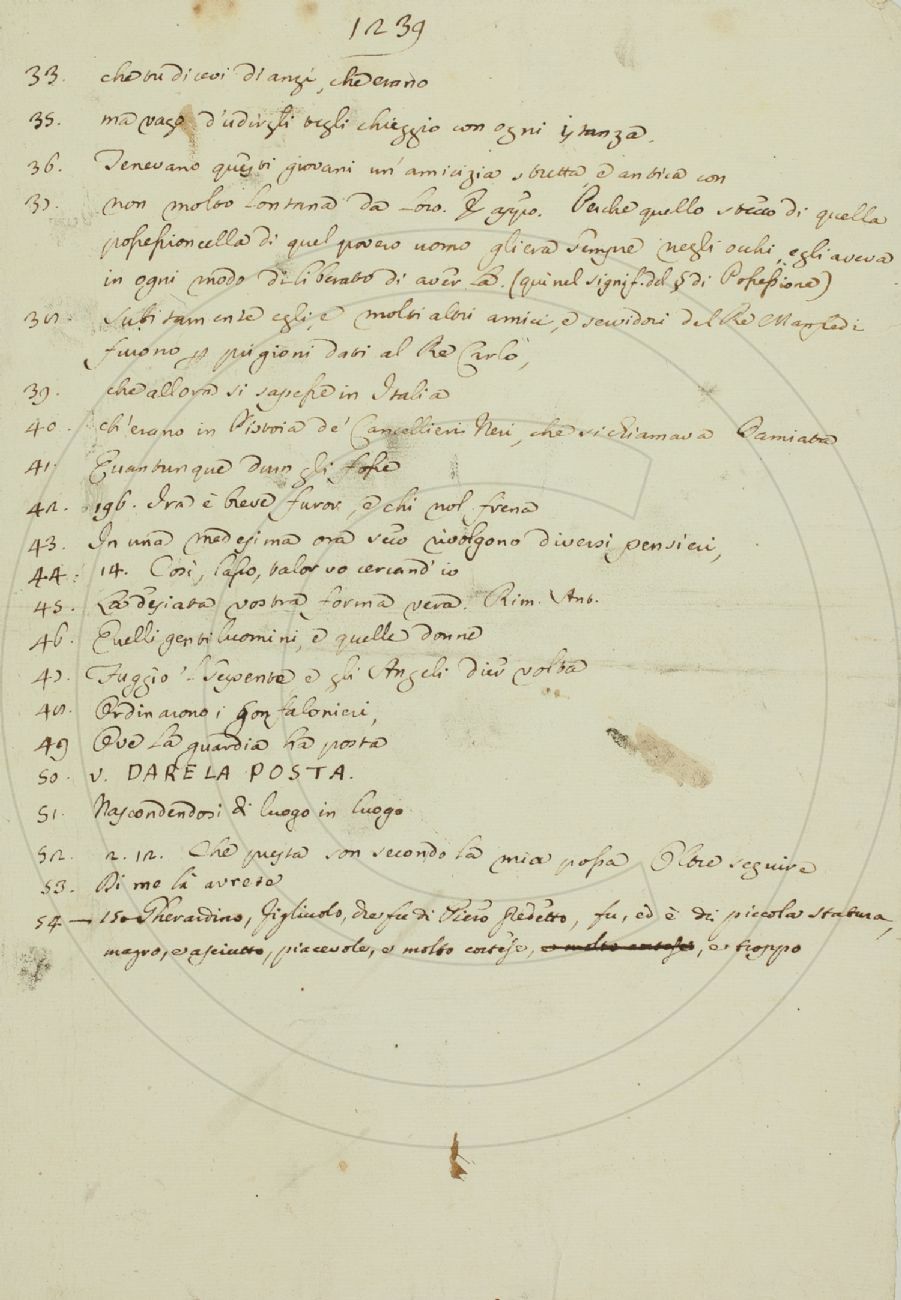 1239
33. che tu dicevi dianzi, che erano
35. ma vago d'udirgli tegli chieggio con ogni istanza.
36. Tenevano questi giovani un' amicizia stretta, e antica con
37. non molto lontana da loro. E appo. Perche quello stecco di quella
possessioncella di quel povero uomo gliera sempre negli occhi, egli aveva
in ogni modo diliberato di aver la. (qui nel signif. del § di Possessione)
38. Subitamente egli, e molti altri amici, e servidori del Re Manfredi
furono per prigioni dati al Re Carlo,
39. che allora si sapesse in Italia
40. ch'erano in Pistoia de' Cancellieri Neri, che si chiamava Damiata
41. Quantunque duin gli fosse
42. 196. Ira è breve furor, e chi nol frena
43. In una medesima ora seco rivolgono diversi pensieri,
44. 14. Così, lasso, talor vo cercand' io
45. La desiata vostra forma vera. Rim. Ant.
46. Quelli gentiluomini, e quelle donne
47. Fuggio 'l serpente e gli Angeli dier volta
48. Ordinarono i gonfalonieri,
49 Ove la guardia ha posta
50. v. DARE LA POSTA.
51. Nascondendosi di luogo in luogo
52. 2. 12. Che questa son secondo la mia possa Oltre seguire
53. Di me la avrete
54 — 150 Gherardino, figliuolo, che fue di Piero fu, ed è di piccola statura,
magro, e asciutto, piacevole, e molto cortese, e molto cortese, e troppo